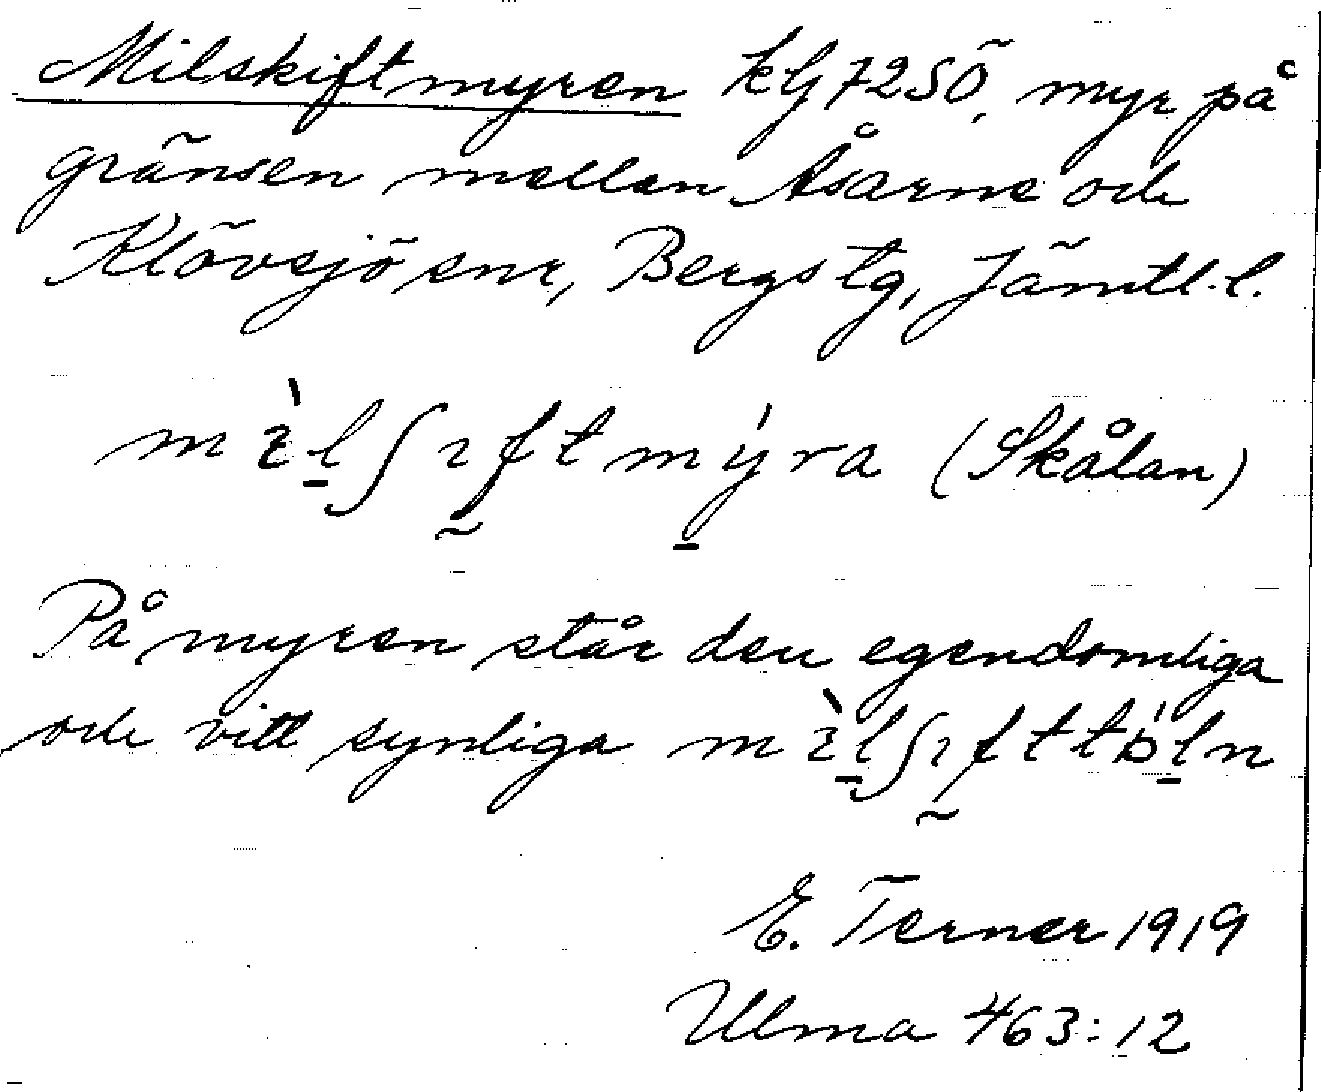 Milskiftmyren kbl 72SÖ, myr på
gränsen mellan Åsarne och
Klövsjö snr, Bergs tg, Jämtl. l.
(Skålan)
På myren står den egendomliga
och vitt synliga
E. Terner 1919
Ulma 463:12